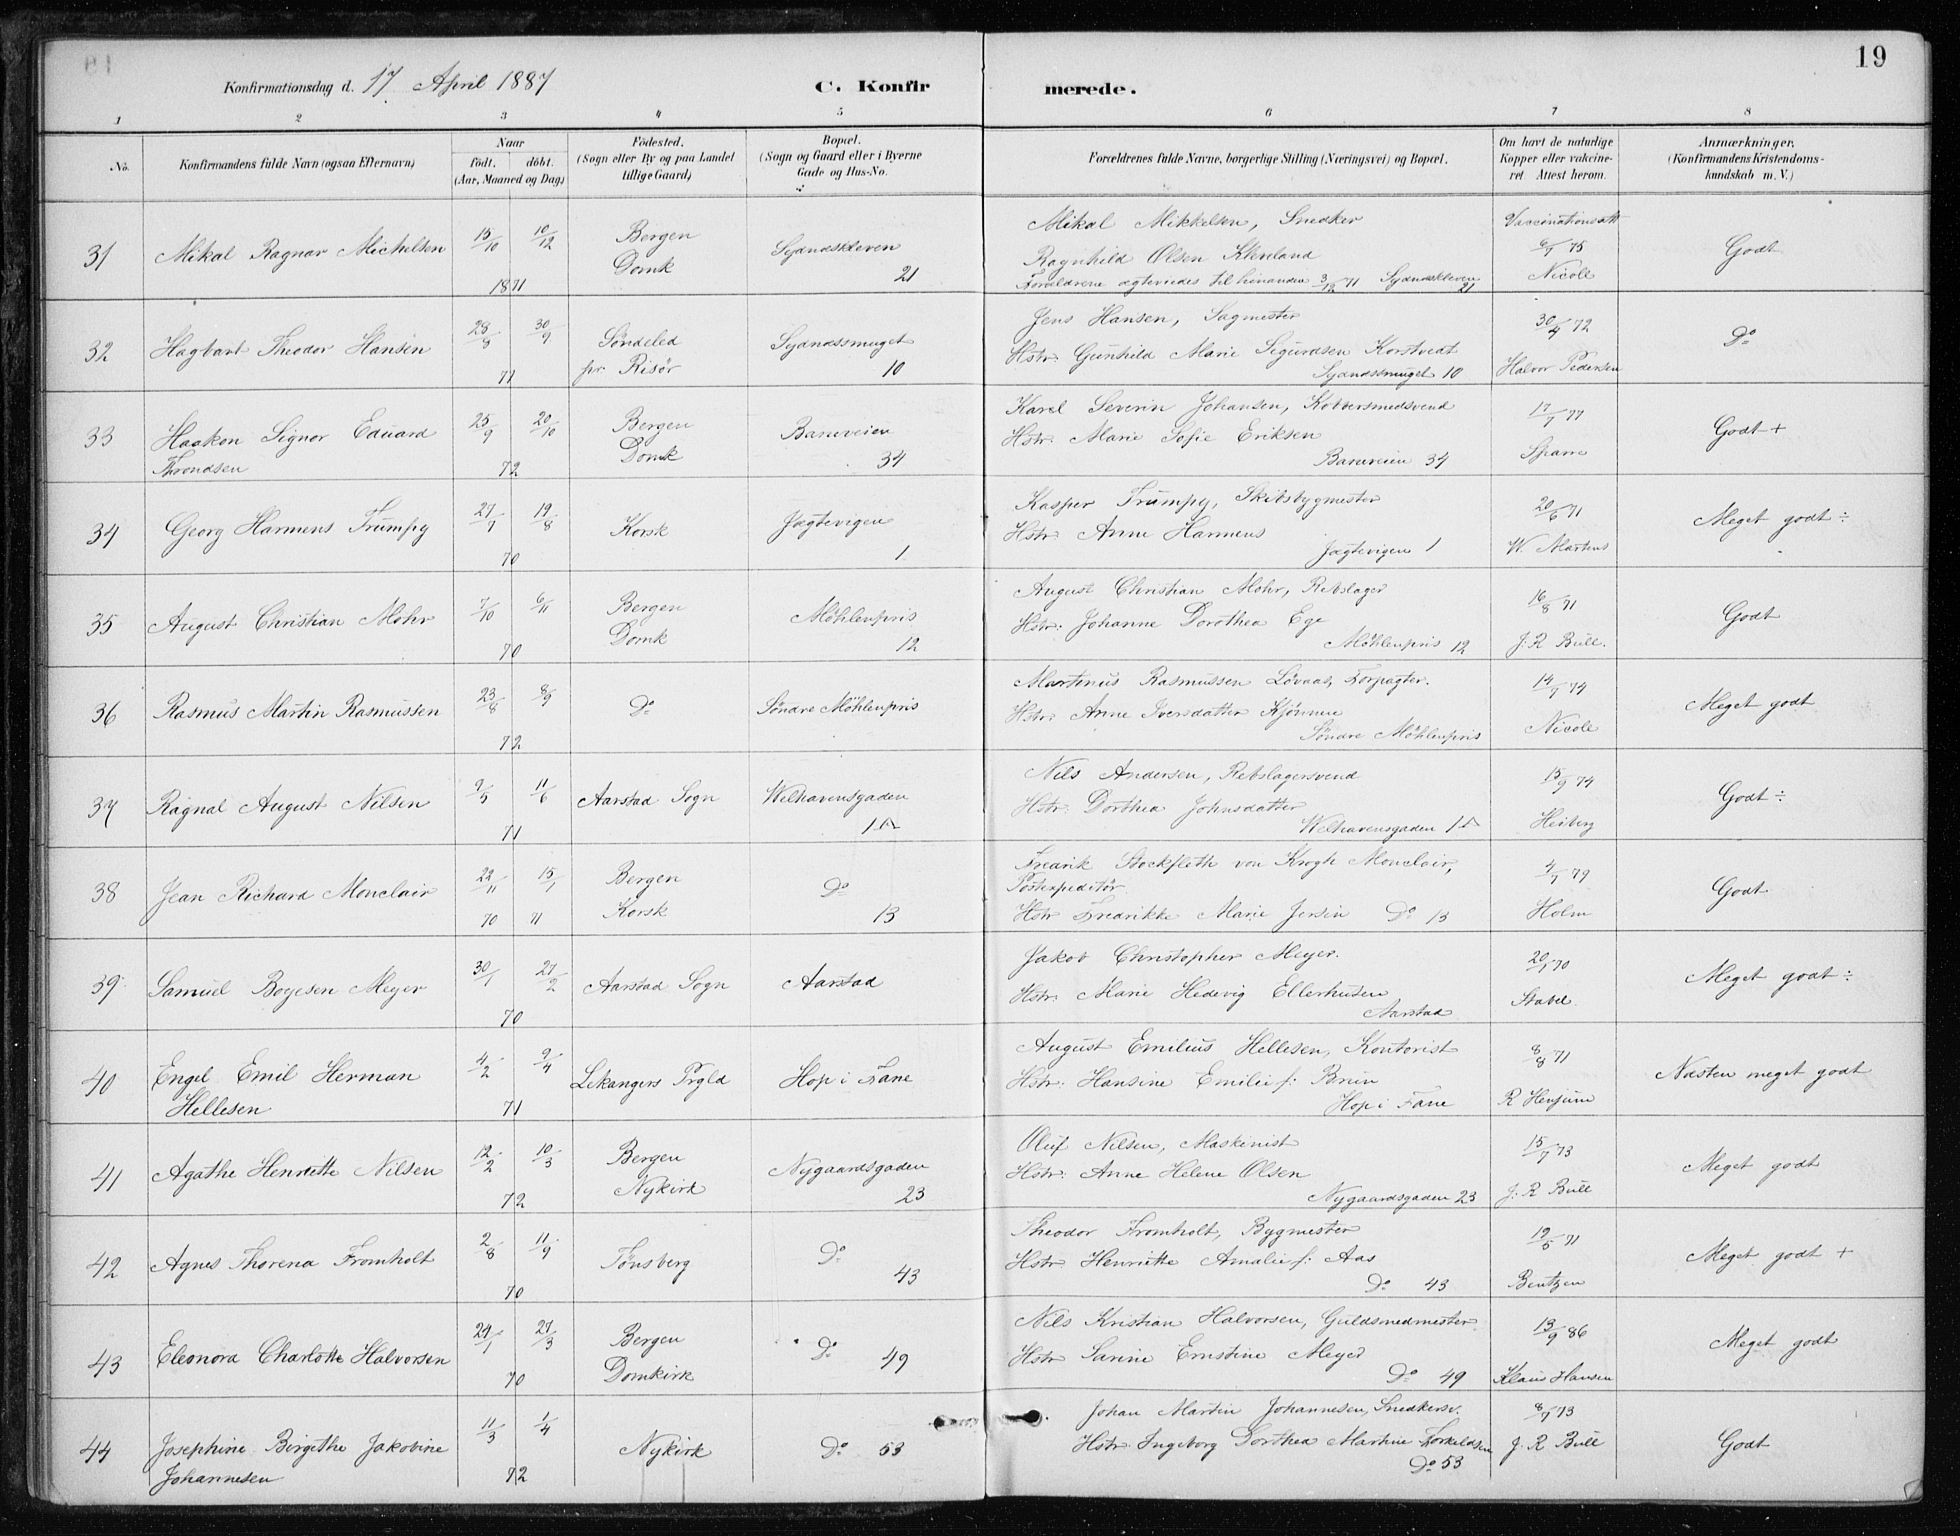 19
Konfirmationsdag d. 17 April 1887 C. Konfirmerede.
1 2 3 4 5 6 7 8
No. Konfirmandens fulde Navn (ogsaa Efternavn) Naar født. døbt. (Aar, Maaned og Dag) Fødested. (Sogn eller By og paa Landet tillige Gaard) Bopæl. (Sogn og Gaard eller i Byerne Gade og Hus-No. Forældrenes fulde Navne, borgerlige Stilling (Næringsvei) og Bopæl. Om havt de naturlige Kopper eller vakcineret. Attest herom. Anmærkninger. (Konfirmandens Kristendomskundskab m. V.)
31 Mikal Ragnar Michelsen 15/10 10/12 1871 Bergen Domk Sydnæskleven 21 Mikal Mikkelsen, Snedker Vaccinationsatt 6/7 75 Nicole Godt
Ragnhild Olsen
Forældrene ægteviedes til hinanden 3/12 71 Sydnæskleven 21
32 Hagbart Theodor Hansen 28/8 30/9 71 Søndeled pr Risør Sydnæssmuget 10 Jens Hansen, Sagmester 30/4 72 Halvor Pedersen Do
Hstr: Gunhild Marie Sigurdsen Korstvedt
Sydnæssmuget 10
33 Haakon Signor Eduard Throndsen 25/9 20/10 72 Bergen Domk Baneveien 34 Karel Severin Johansen, Kobbersmedsvend 17/7 77 Sparre Godt +
Hstr. Marie Sofie Eriksen
Baneveien 34
34 Georg Harmens Trumpy 27/7 19/8 70 Korsk Jægtevigen 1 Kasper Trumpy, Skibsbygmester 20/6 71 W. Martens Meget godt ÷
Hstr. Anne Harmens
Jægtevigen 1
35 August Christian Mohr 7/10 6/11 70 Bergen Domk Möhlenpris 12 August Christian Mohr, Rebslager 16/8 71 J. R Bull. Godt
Hstr: Johanne Dorothea Ege
Möhlenpris 12
36 Rasmus Martin Rasmussen 23/8 8/9 72 Do Söndre Möhlenpris Martinus Rasmussen Lövaas, Forpagter. 14/7 74 Nicole Meget godt
Hstr: Anne Iversdatter Kjönnen
Söndre Möhlenpris
37 Ragnal August Nilsen 9/5 11/6 71 Aarstad Sogn Welhavensgaden 1A Nils Andersen, Rebslagersvend 15/9 74 Heiberg Godt ÷
Hstr: Dorthea Johnsdatter
Welhavensgaden 1A
38 Jean Richard Monclair 22/11 70 15/1 71 Bergen Korsk Do 13 Fredrik Stockfleth von Krogh Monclair, 4/7 79 Holm Godt
Postexpeditör
Hstr Fredrikke Marie Jersin Do 13
39 Samuel Boyesen Meyer 30/1 27/2 70 Aarstad Sogn Aarstad Jakob Christopher Meyer. 20/1 70 Stabel Meget godt ÷
Hstr. Marie Hedevig Ellerhusen
Aarstad
40 Engel Emil Herman Hellesen 4/2 9/4 71 Lekangers Prgld Hop i Fane August Emilius Hellesen, Kontorist 8/8 71 R Henjum Næsten meget godt
Hstr: Hansine Emilie f: Bruun
Hop i Fane
41 Agathe Henriette Nilsen 12/2 10/3 72 Bergen Nykirk Nygaardsgaden 23 Oluf Nilsen, Maskinist 15/7 73 J. R Bull Meget godt
Hstr: Anne Helene Olsen
Nygaardsgaden 23
42 Agnes Thorena Fromholt 2/8 11/9 70 Tönsberg Do 43 Theodor Fromholt, Bygmester 19/5 71 Bentzen Meget godt +
Hstr Henriette Amalie f: Aas
Do 43
43 Eleonora Charlotte Halvorsen 24/1 27/3 70 Bergen Domkirk Do 49 Nils Kristian Halvorsen, Guldsmedmester 13/9 86 Klaus Hansen Meget godt
Hstr Sarine Ernstine Meyer
Do 49
44 Josephine Birgethe Jakobine Johannesen 11/3 1/4 72 Nykirk Do 53 Johan Martin Johannesen, Snedkersv. 8/7 73 J. R Bull Godt
Hstr. Ingeborg Dorthea Martine Torkildsen
Do 53